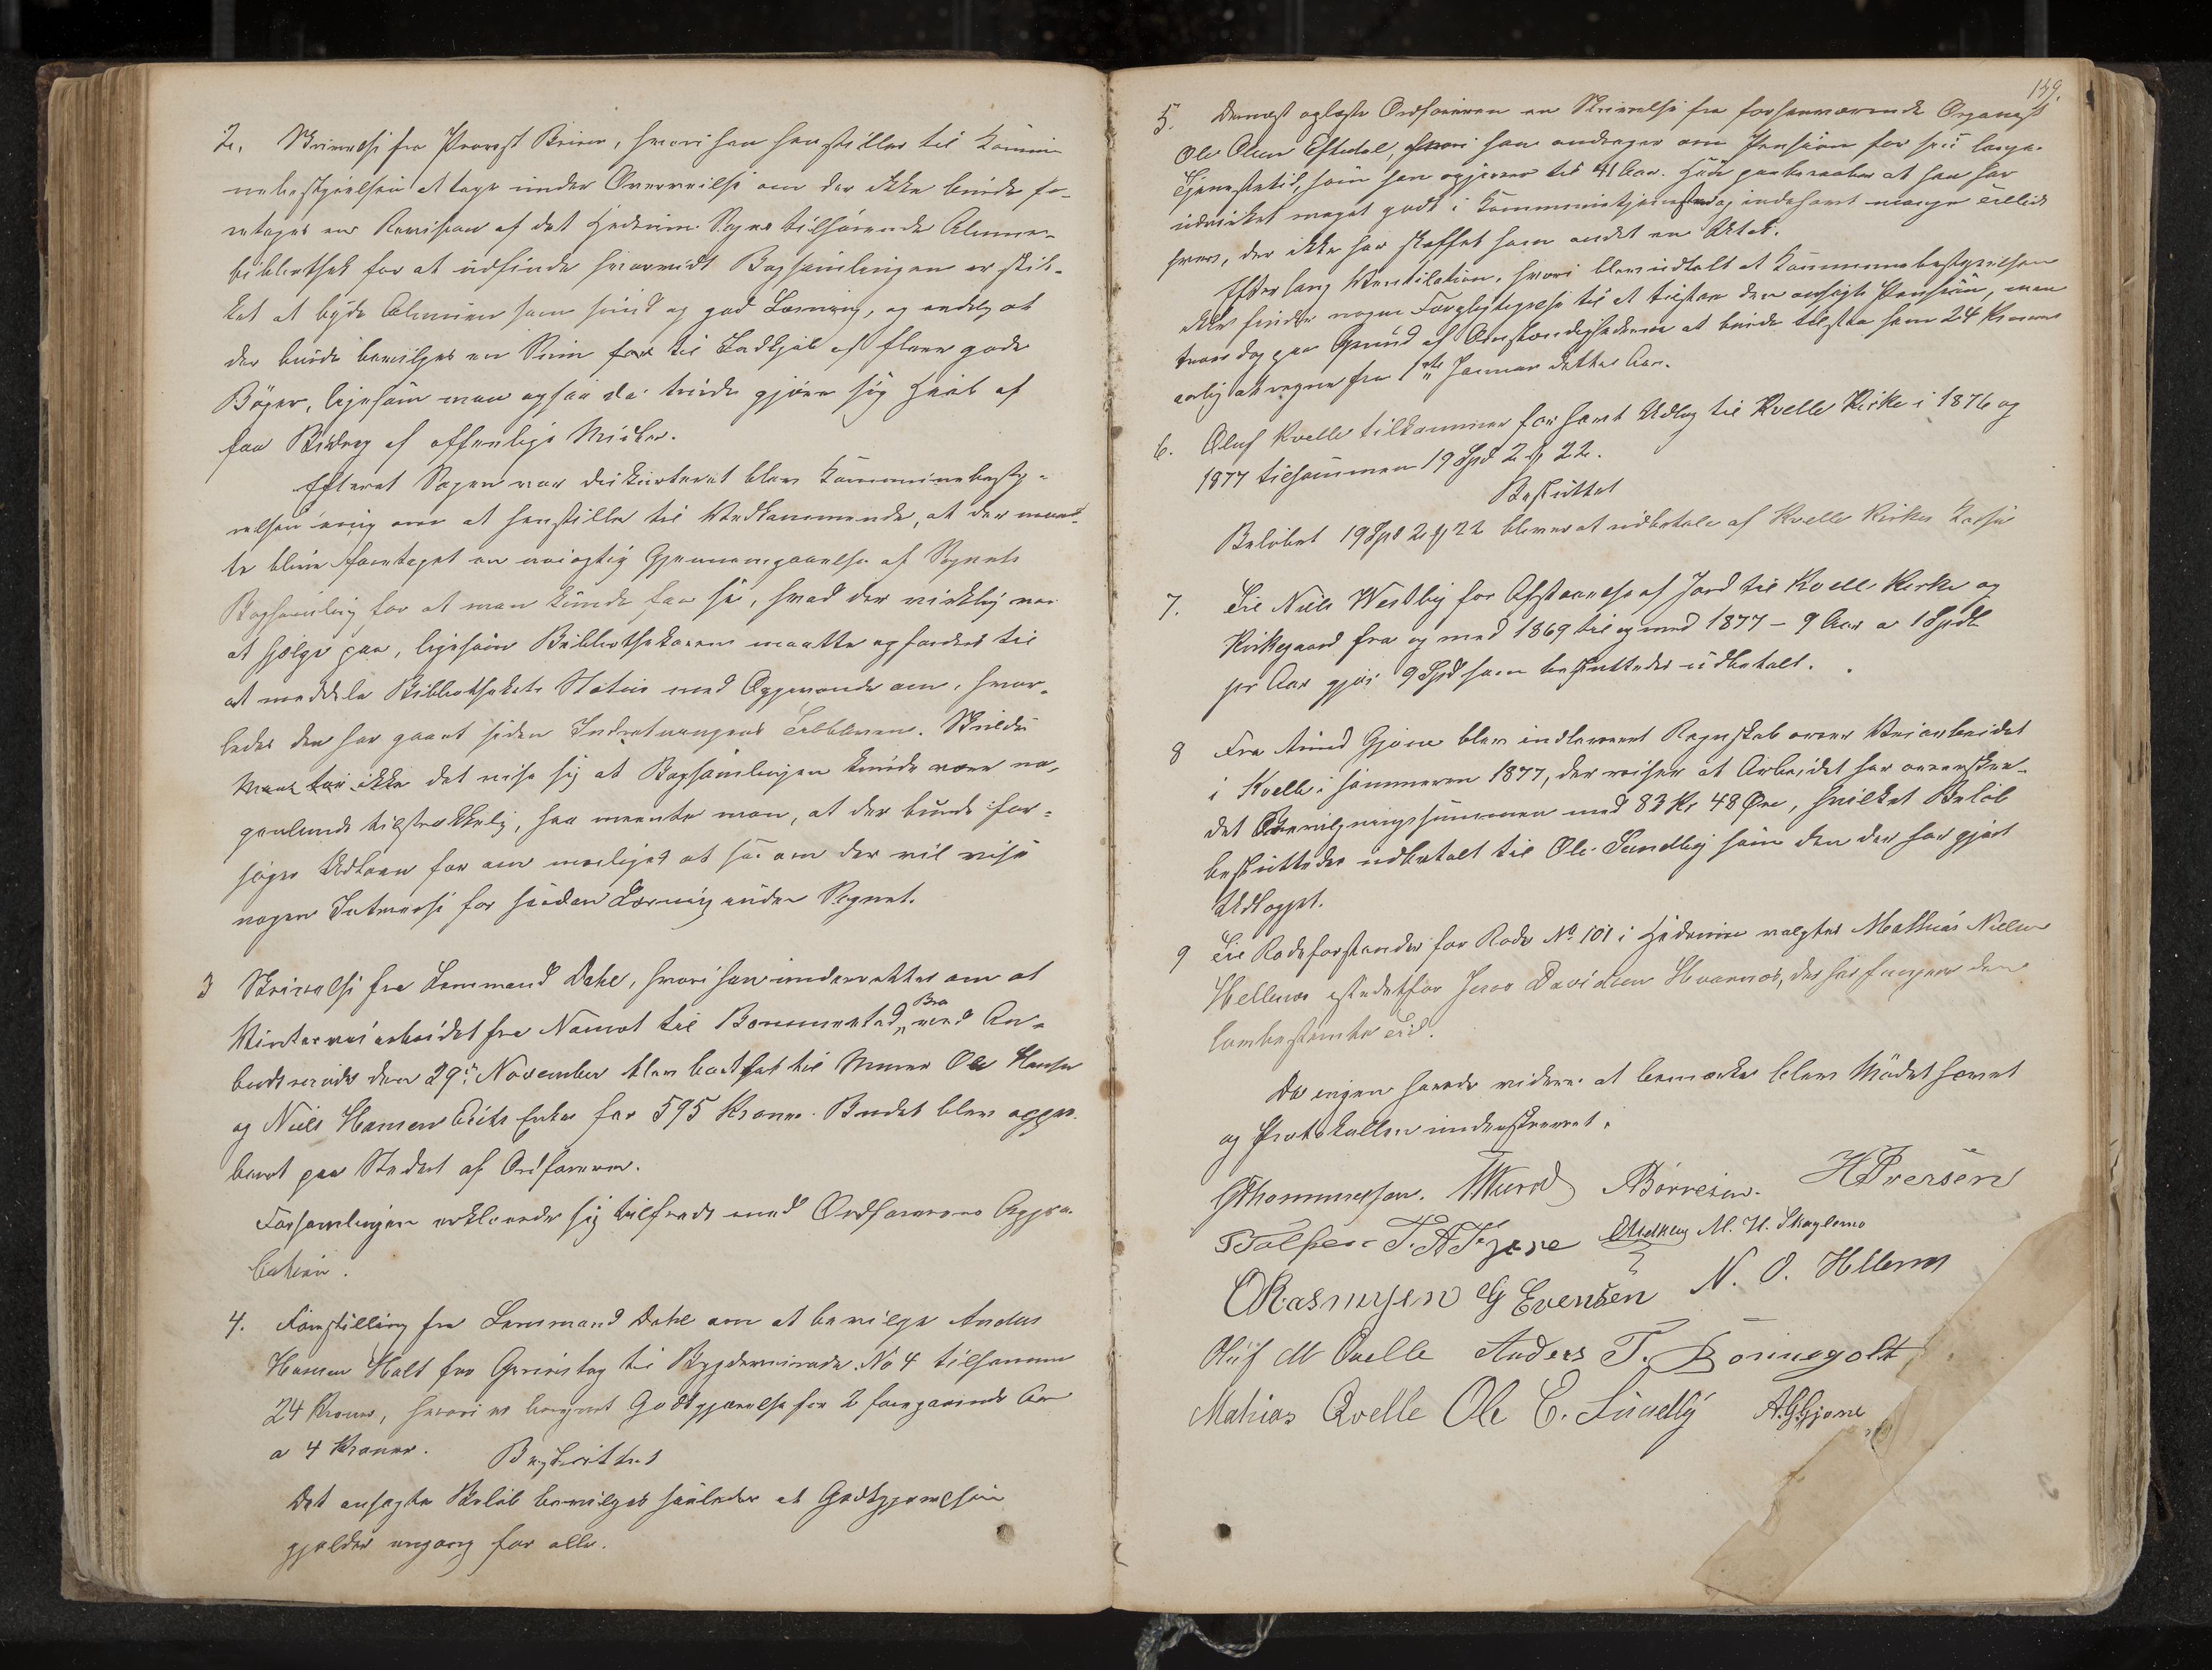 2. Skrivelse fra Provst Bruun, hvori han henstiller til Kommu-
nebestyrelsen at tage under Overveielse om der ikke burde fo-
retages en Revision af det Hedrum Sogn tilhørende Almue-
bibliothek for at udfinde hvorvidt Bogsamlingen er skik-
ket at byde Almuen sam sund og god Læsning, og endelig at
der burde bevilges en Sum for til Indkjøb af flere gode
Bøger, ligesom man ogsaa da turde gjøre sig Haab af
faa Bidrag af offentlige Midler.
Efterat Sagen var diskuteret blev Kommunebesty-
relsen enig om at henstille til Vedkommende, at der maat-
te blive foretaget en nøiagtig Gjennemgaaelse af Sognets
Bogsamling for at man kunde faa se, hvad der virkelig var
at hjælpe paa, ligesom Bibliothekaren maatte opfordres til
at meddele Bibliothekets Status med Opgevende om, hvor-
ledes den har gaaet siden Indretningens Tilbliven. Skulde
det vise sig at Bogsamlingen kunde være no-
genlunde tilstrækkelig, saa meente man, at der burde for-
søges Udlaan for om muligt at se om der vil vise
nogen Interesse for saadan Læsning inden Sognet.
3 Skrivelse fra Lensmand Dahl, hvori han underrettes om at
Vinterveiarbeidet fra Nanset til Bommestad Bro ved An-
budsmøde den 29de November blev bortsat til Murer Ole Hansen
og Niels Hansen for 595 Kroner. Budet blev appro-
beret paa Stedet af Ordføreren.
Forsamlingen erklærede sig tilfreds med Ordførerens Appro-
bation.
4. Fremstilling fra Lensmand Dahl om at bevilge Anders
Hansen Holt for Gruustag til Bygdeveirode No 4 tilsammen
24 Kroner, hvori er beregnet Godtgjørelse for 2 foregaaende Aar
a 4 Kroner. Besluttet
Det ansøgte Beløb bevilges saaledes at Godtgjørelsen
gjælder engang for alle.
139.
5. Dernæst oplæste Ordføreren en Skrivelse fra forhenværende Organist
Ole Olsen Eftedal, hvori han andrager om Pension for sin lange
Tjenestetid, som han opgiver til 41 Aar. Han paaberaaber at han har
udvirket meget godt i Kommunetjenesten og indehavt mange Tillids
hverv, der ikke har skaffet ham andet en Attest.
Efter lang Ventilation, hvori blev udtalt at Kommunebestyrelsen
ikke finder nogen Forpligtigelse til at tilstaa den ansøgte Pension, men
troer dog paa Grund af Omstændighederne at burde tilstaa ham 24 Kroner
aarlig at regne fra 1ste Januar dette Aar.
6. Oluf Kvelle tilkommer for havt Udlæg til Kvelle Kirke i 1876 og
1877 tilsammen 19 Spd 2 # 22.
Besluttet
Beløbet 19 Spd 2 # 22 bliver at udbetale af Kvelle Kirkes Kasse
7. Til Niels Westby for Afstaaelse af Jord til Kvelle Kirke og
Kirkegaard fra og med 1869 til og med 1877 – 9 Aar a 1 Spdlr
pr Aar gjør 9 Spd som besluttedes udbetalt.
8 Fra Amund Gjone blev indleveret Regnskab over Veiarbeidet
i Kvelle i Sommeren 1877, der viser at Arbeidet har overskre-
det Bevilgningssummen med 83 Kr 48 Øre, hvilket Beløb
besluttedes udbetalt til Ole Sundby som den der har gjort
Udlægget.
9 Til Rodeforstander for Rode No 101 i Hedrum valgtes Mathias Nielsen
Hellenes istedetfor Iver Davidsen Hvaarnes, der har fungeret den
lovbestemte Tid.
Da ingen havde videre at bemærke blev Mødet hævet
og Protokollen underskrevet.
GThommesen. Wurod ABørresen. HIversen
T. A. Tejgene M. H. Skaglemo
ORasmussen G Evensen N. O. Hellenes
Oluf M Qvelle Anders T. Bonnegolt
Mathias Qvelle Ole C. Sundby A.G.Gjone